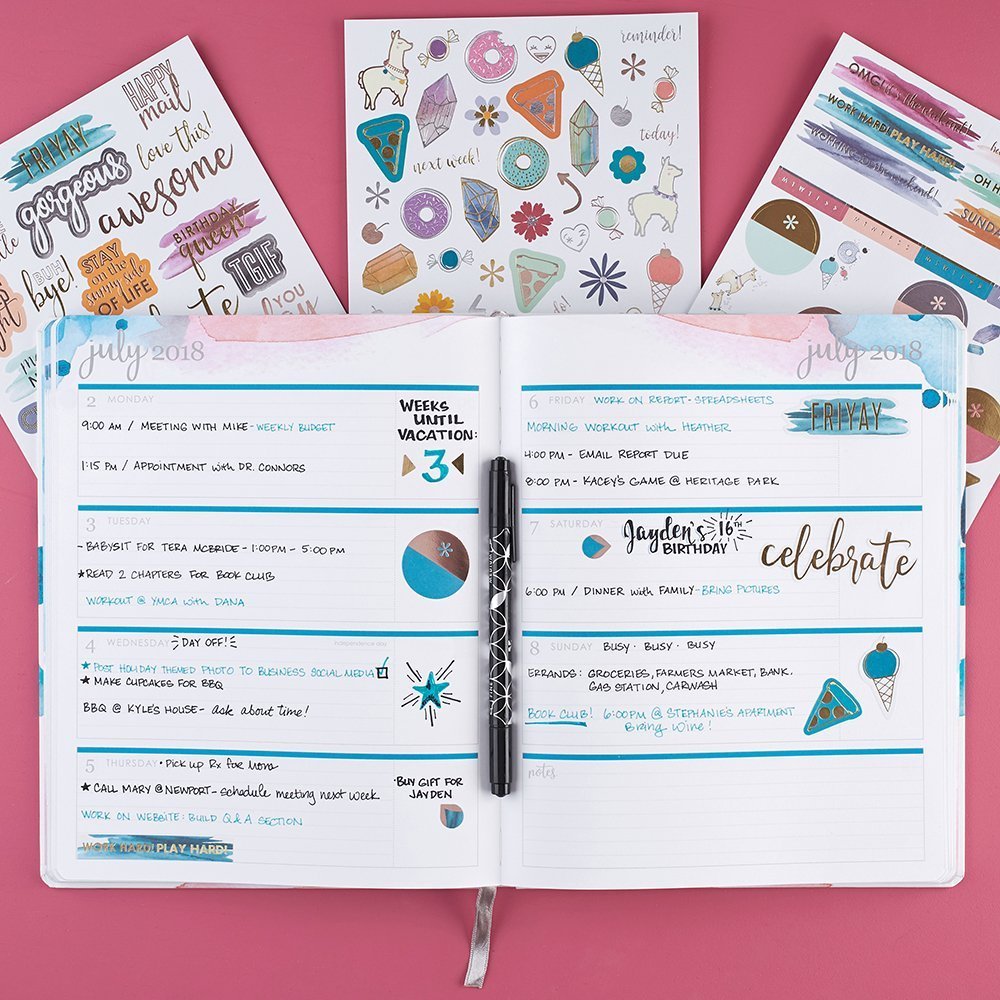 HAPPY
mail
FRIYAY
love this!
gorgeous
awesome
BIRTHDAY
queen
BUH
bye!
STAY
on the
sunny side
OF LIFE
TGIF
YOU
reminder!
today!
next week!
OMG! it's the weekend!
WORK HARD! PLAY HARD!
WORKING for the weekend!
M T W T F S S
M T W T F S S
M T W T F S S
july 2018
2 MONDAY
9:00 AM / MEETING WITH MIKE - WEEKLY BUDGET
1:15 PM / APPOINTMENT with DR. CONNORS
WEEKS
UNTIL
VACATION:
3
3 TUESDAY
- BABYSIT FOR TERA MCBRIDE - 1:00PM - 5:00 PM
★READ 2 CHAPTERS FOR BOOK CLUB
WORKOUT @ YMCA with DANA
4 WEDNESDAY DAY OFF! independence day
★ POST HOLIDAY THEMED PHOTO TO BUSINESS SOCIAL MEDIA
★ MAKE CUPCAKES FOR BBQ
BBQ @ KYLE'S HOUSE - ask about time!
5 THURSDAY • Pick up Rx for Mom
★ CALL MARY @ NEWPORT - schedule meeting next week
WORK ON WEBSITE: BUILD Q & A SECTION
WORK HARD! PLAY HARD!
• BUY GIFT FOR
JAYDEN
july 2018
6 FRIDAY WORK ON REPORT - SPREADSHEETS
FRIYAY
MORNING WORKOUT with HEATHER
4:00 PM - EMAIL REPORT DUE
8:00 PM - KACEY'S GAME @ HERITAGE PARK
7 SATURDAY Jayden's 16TH
BIRTHDAY
celebrate
6:00 PM / DINNER with FAMILY - BRING PICTURES
8 SUNDAY BUSY • BUSY • BUSY
ERRANDS: GROCERIES, FARMERS MARKET, BANK,
GAS STATION, CARWASH
BOOK CLUB! 6:00PM @ STEPHANIE'S APARTMENT
Bring Wine!
notes